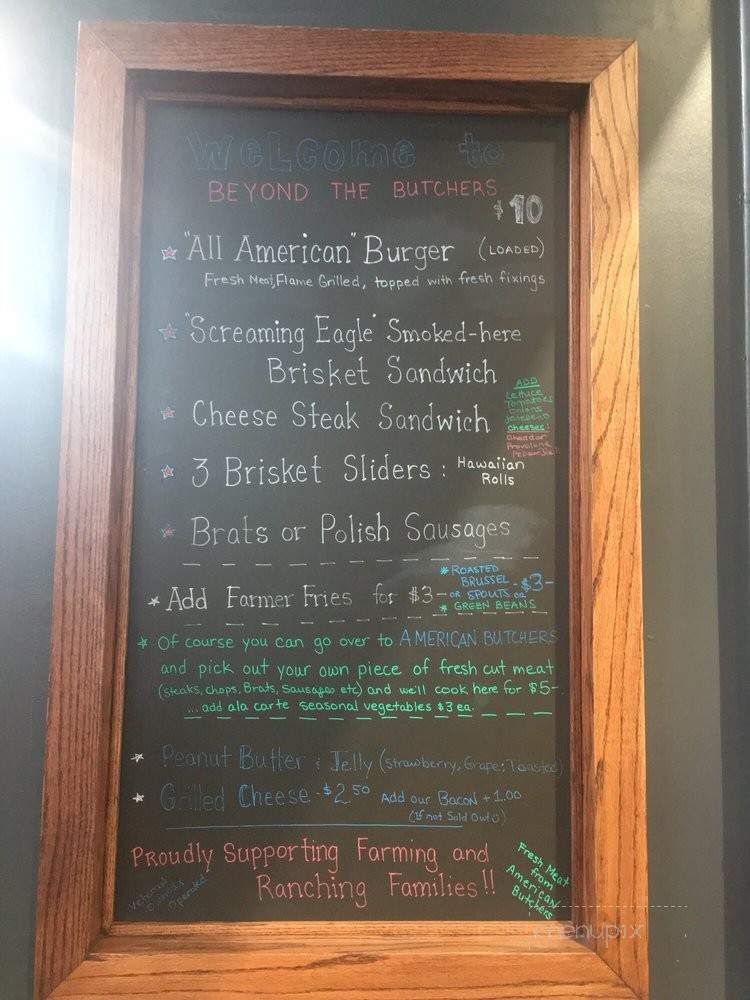 Welcome to
BEYOND THE BUTCHERS
$10
"All American" Burger (LOADED)
Fresh Meat, Flame Grilled, topped with fresh fixings
"Screaming Eagle" Smoked-here
Brisket Sandwich
ADD
Lettuce
Tomatoes
Onions
Jalapeno
Cheeses:
Cheddar
Provolone
Cheese Steak Sandwich
3 Brisket Sliders : Hawaiian
Rolls
Brats or Polish Sausages
* Add Farmer Fries for $3-
* ROASTED
BRUSSEL
OR SPOUTS ea -$3-
* GREEN BEANS
* Of course you can go over to AMERICAN BUTCHERS
and pick out your own piece of fresh cut meat
(steaks, chops, Brats, Sausages etc) and we'll cook here for $5-
... add ala carte seasonal vegetables $3 ea.
Peanut Butter & Jelly (strawberry, Grape: Toasted)
Grilled Cheese -$2.50 Add our Bacon +1.00
(If not Sold Out)
Proudly Supporting Farming and
Ranching Families!!
Veteran
Owned &
Operated
Fresh Meat
from
American
Butchers
menupix